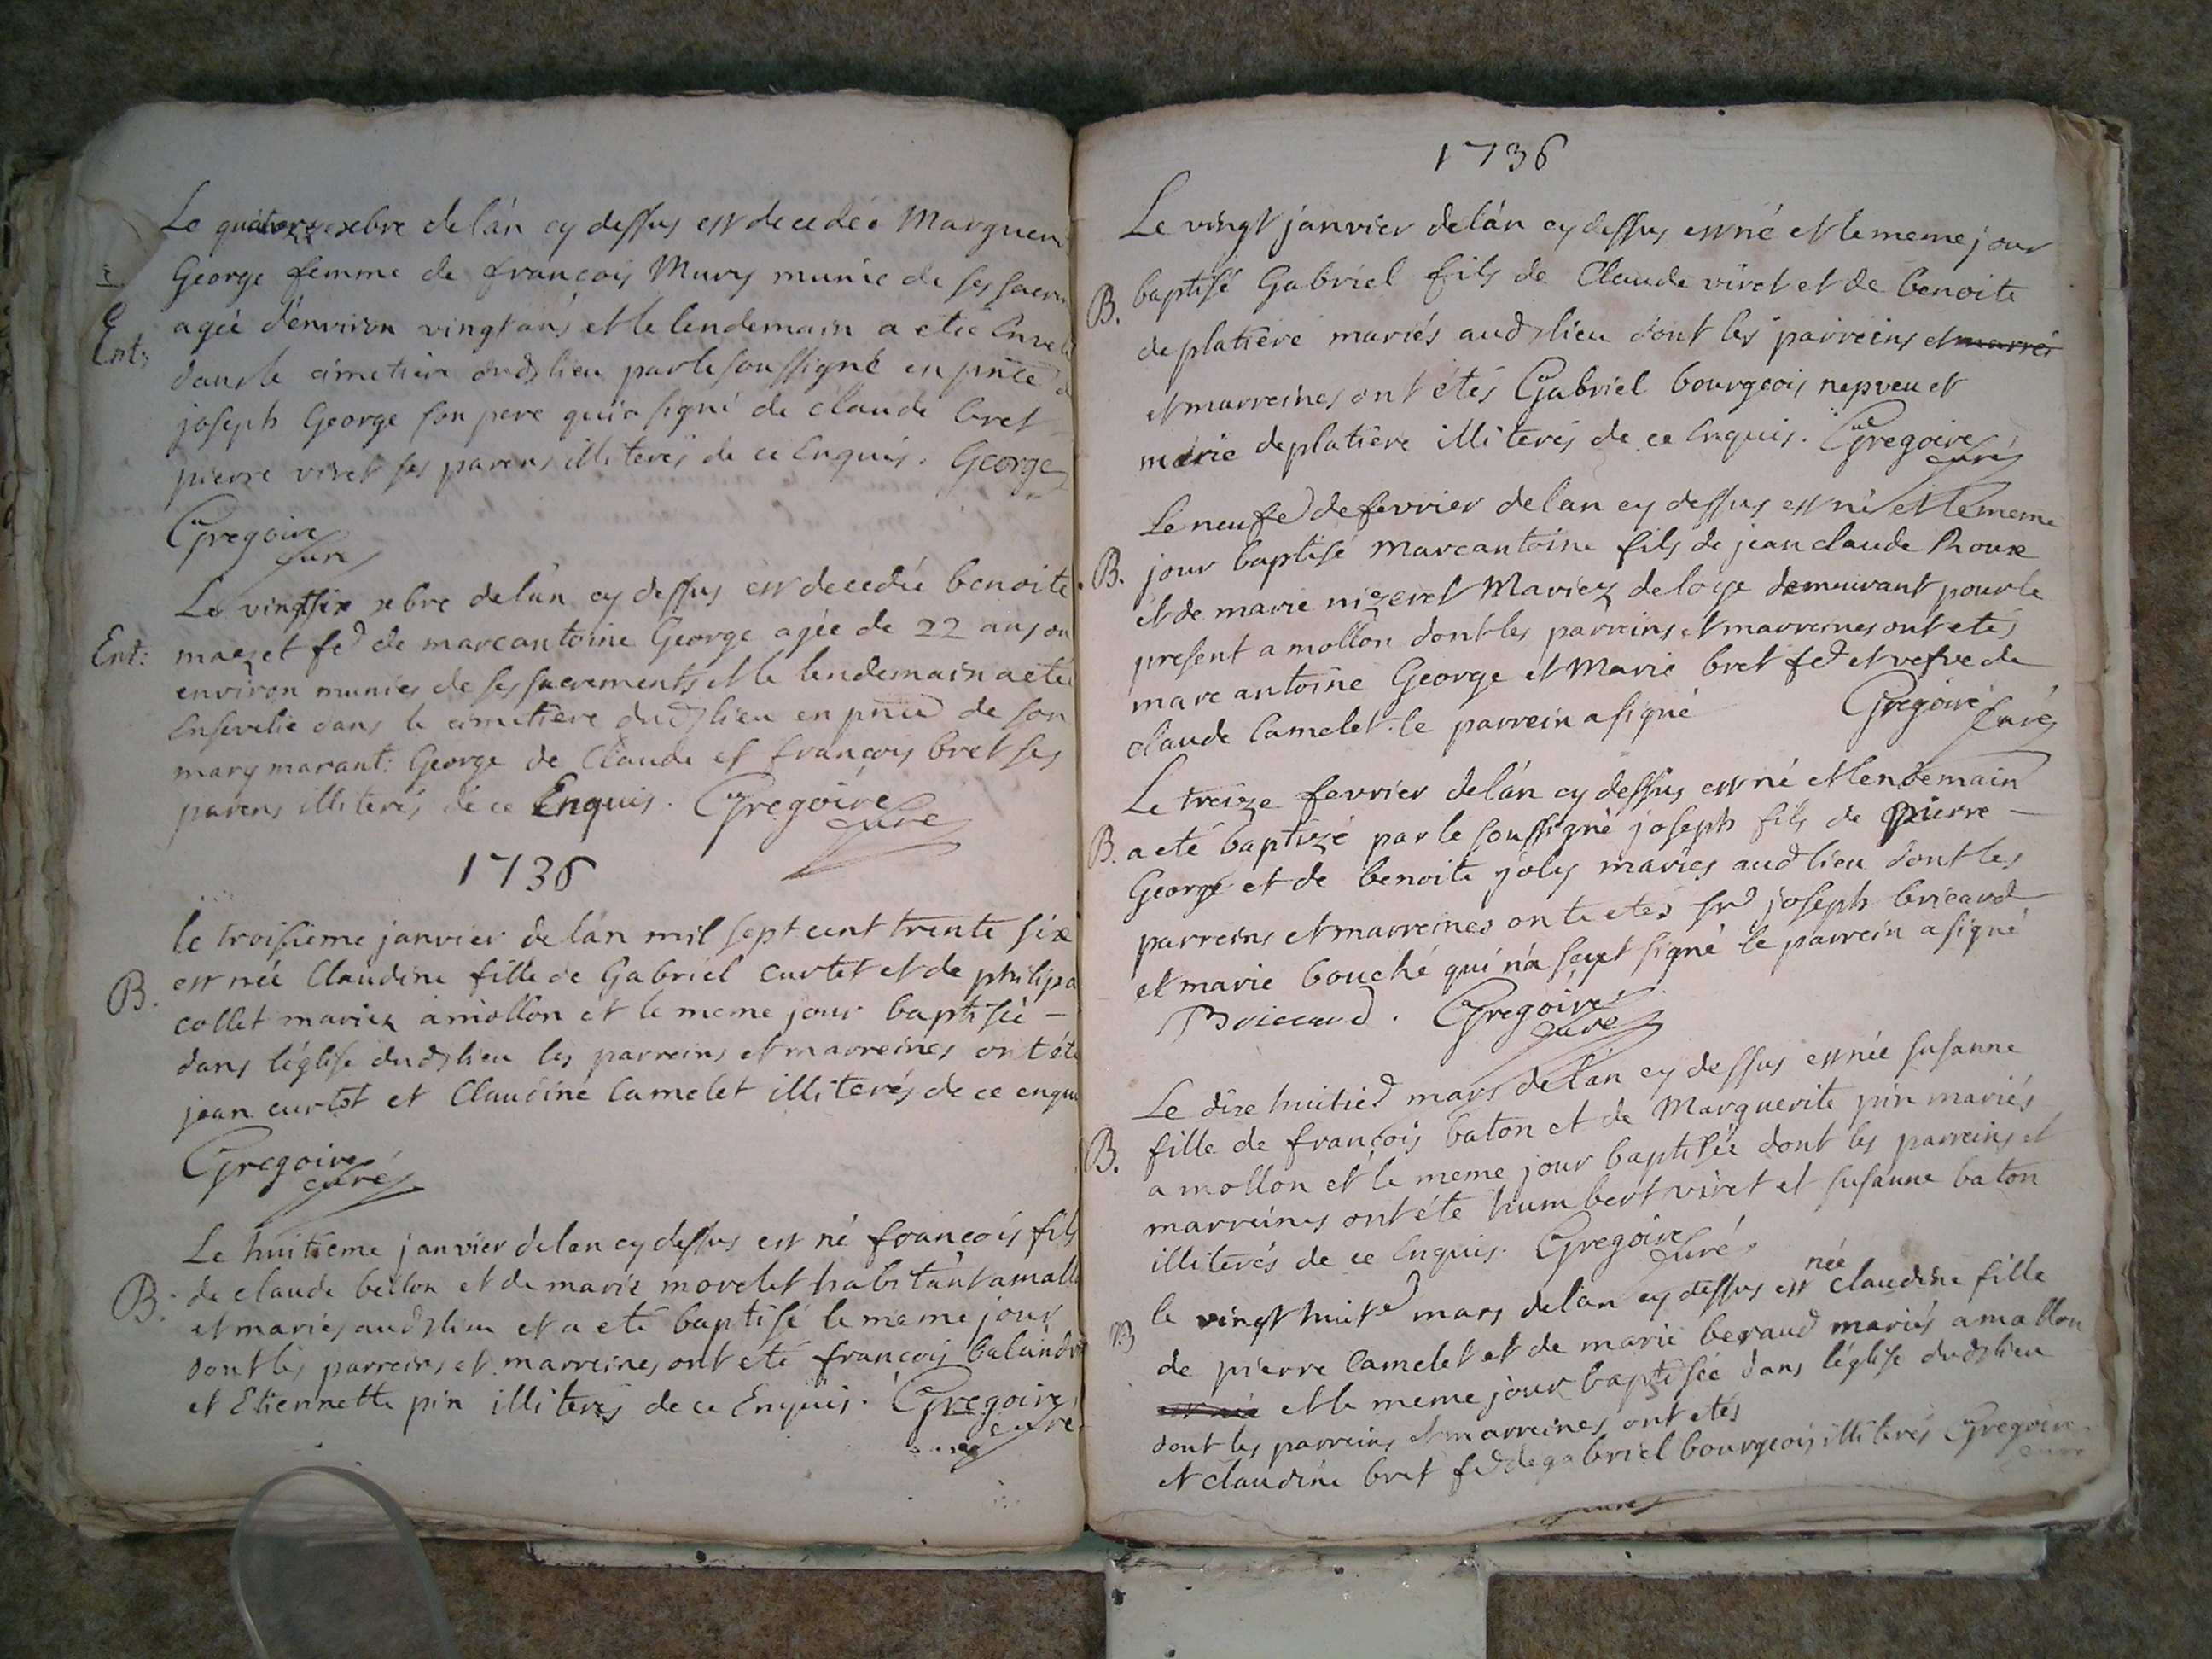 Le quatorze xbre de lán cy dessus est decedée Margueri
George femme de francois Mury munie de ses sacre
Ent: agée denviron vingt ans et le lendemain a etée Enveli
dans le cimetiere dud lieu par le soussigné en pnce d
joseph George son pere qui a signé de claude bret
pierre viret ses parens illiterés de ce Enquis. George
Gregoire
curé
Le vingtsix xbre de lán cy dessus est decedée benoite
Ent: mazet fe de marcantoine George agée de 22 ans ou
environ munies de ses sacrements et le lendemain a eté
Ensevelie dans le cimetiere dud lieu en pnce de son
mary marant: George de Claude et françois bret ses
parens illiterés de ce Enquis. Gregoire
curé
1736
le troisieme janvier de lán mil sept cent trente six
B. est née Claudine fille de Gabriel curtet et de philipa
collet mariez a mollon et le meme jour baptisée -
dans léglise dud lieu les parreins et marreines ont été
jean curtet et Claudine Camelet illiterés de ce enqui
Gregoire
curé
Le huitieme janvier de lan cy dessus est né francois fils
B. de claude bellon et de marie morelet habitant a moll
et mariés aud lieu et a eté baptisé le meme jour
dont les parreins et marreines ont eté francois balandr
et Etiennette pin illiterés de ce Enquis. Gregoire
curé
1736
Le vingt janvier de lán cy dessus est né et le meme jour
B. baptisé Gabriel fils de Claude viret et de benoite
deplatiere mariés aud lieu dont les parreins et marrei
et marreines ont étés Gabriel bourgeois nepveu et
marie deplatiere illiterés de ce Enquis. Gregoire
curé
Le neufe de fevrier de lan cy dessus est né et le meme
B. jour baptisé marcantoine fils de jean claude Roux
et de marie niezeret Mariez de loye demeurant pour le
present a mollon dont les parreins et marreines ont etés
marc antoine George et Marie bret fe et vefve de
claude Camelet. le parrein a signé Gregoire
Curé
Le treize fevrier de lán cy dessus est né et lendemain
B. a eté baptizé par le soussigné joseph fils de pierre -
George et de benoite joly mariés aud lieu dont les
parreins et marreines onte etés sr joseph bricaud
et marie bouché qui ná sçeut signé le parrein a signé
Briccaud. Gregoire
curé
Le dixe huitie mars de lán cy dessus est née susanne
B. fille de françois baton et de Marguerite pin mariés
a mollon et le meme jour baptisée dont les parreins et
marreines ont été humbert viret et susanne baton
illiterés de ce Enquis. Gregoire
curé
le vingt huite mars de lan cy dessus est née claudine fille
B de pierre Camelet et de marie beraud mariés a mollon
est née et le meme jour baptisée dans léglise dud lieu
dont les parreins et marreines ont etés
et claudine bret fe de gabriel bourgeois illiterés Gregoire
curé